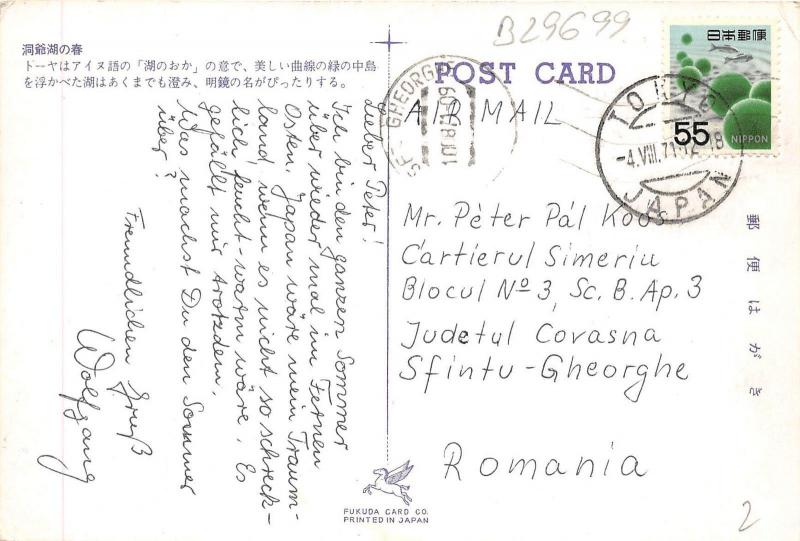 B29699
洞爺湖の春
トーヤはアイヌ語の「湖のおか」の意で、美しい曲線の緑の中島
を浮かべた湖はあくまでも澄み、明鏡の名がぴったりする。
POST CARD
AIR MAIL
SF. GHEORGHE
日本郵便
55
NIPPON
TOKYO
-4.VIII.71.12-18
JAPAN
Lieber Peter!
Ich bin den ganzen Sommer
über wieder mal im Fernen
Osten. Japan wäre mein Traum-
land, wenn es nicht so schreck-
lich feucht-warm wäre. Es
gefällt mir trotzdem.
Was machst Du den Sommer
über?
Freundlichen Gruß
Wolfgang
Mr. Péter Pál Koos
Cartierul Simeriu
Blocul Nº 3, Sc. B. Ap. 3
Judetul Covasna
Sfintu-Gheorghe
Romania
郵便はがき
FUKUDA CARD CO.
PRINTED IN JAPAN
2